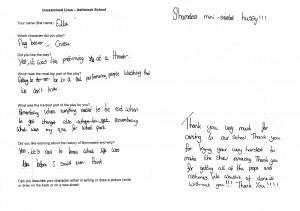 Unexamined Lives – Ashbrook School
Your name (first name): Ella
Which character did you play?
Did you like the play?
Yes, it was like performing at a theater.
What was the most fun part of the play?
be in a performing people watching that
we don't know.
What was the hardest part of the play for you?
Remembering when everything needed to be said when
to get changed also remembering
what was my que for what part.
Did you like learning about the history of and why?
Yes, it's cool to know what life was
like before I could even think.
Can you describe your character either in writing or draw a picture (write
or draw on the back or on a new sheet)
Shameless mini-skirted hussy!!!
Thank you very much for
coming to our school. Thank you
for trying your very hardest to
make the show amazing. Thank you
for getting all of the props and
costumes. We wouldn't of done it
without you!!!! Thank You!!!!